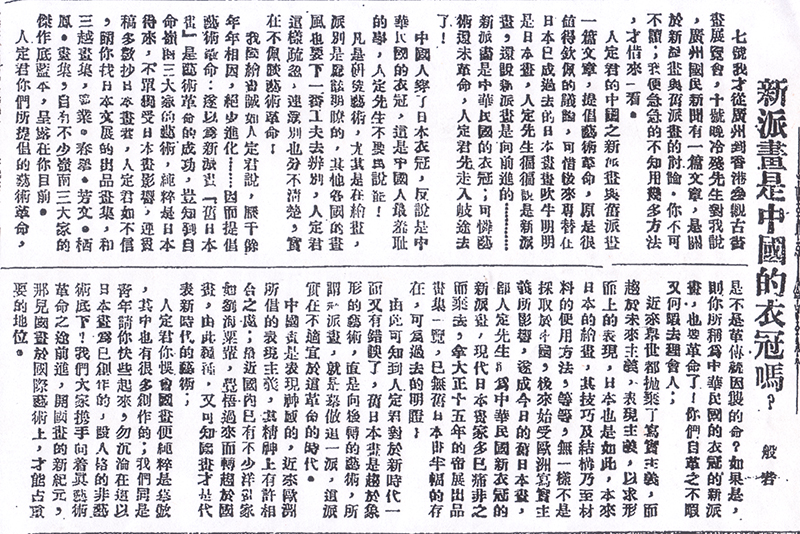 新派畫是中國的衣冠嗎?
般若
七號我才從廣州到香港參觀古書
畫展覽會,十號晚冷殘先生對我說
,廣州國民新聞有一篇文章,是關
於新派畫與舊派畫的討論。你不可
不讀;我便急急的不知用幾多方法
,才借來一看。
人定君的中國之新派畫與舊派畫
一篇文章,提倡藝術革命,原是很
值得欽佩的議論,可惜後來專替在
日本已成過去的日本畫畫吹牛明明
是日本畫,人定先生偏偏說是新派
畫,還說新派畫是向前進的………
新派畫是中華民國的衣冠;可憐藝
術還未革命,人定君先走入歧途去
了!
中國人穿了日本衣冠,反說是中
華民國的衣冠,這是中國人最羞耻
的事,人定先生不要亂說罷!
凡是研究藝術,尤其是在繪畫
派別是應該明瞭的,其他各國的畫
風也要下一番工夫去辨別,人定君
這樣疏忽,連派別也分不清楚,實
在不佩談藝術革命!
我國繪畫誠如人定君說,歷千餘
年年相因,絕少進化………因而提倡
藝術革命:遂以為新派畫「舊日本
畫」是藝術革命的成功,豈知到自
命嶺南三大家的藝術,純粹是日本
得來,不單獨受日本畫影響,連畫
稿多數抄日本畫畫,人定君如不信
,請你找日本文展的出品畫集,和
三越畫集,春擧。芳文。栖
鳳。畫集,自有不少嶺南三大家的
傑作底藍本,呈露在你目前。
人定君你們所提倡的藝術革命,
是不是革傳統因襲的命?如果是,
則你所稱為中華民國的衣冠的新派
畫,也要革命了!你們自革之不暇
又何暇去理會人;
近來舉世都拋棄了寫實主義,而
趨於未來主義,表現主義,以求形
而上的表現,日本也是如此,本來
日本的繪畫,其技巧及結構乃至材
料的使用方法,等等,無一樣不是
採取於中國,後來始受歐洲寫實主
義所影響,遂成今日的舊日本畫,
即人定先生稱為中華民國新衣冠的
新派畫,現代日本畫家多已痛非之
而棄去,拿大正十五年的帝展出品
畫集一覽,已無舊日本畫半幅的存
在,可為過去的明證;
由此可知到人定君對於新時代一
而又有錯誤了,舊日本畫是趨於象
形的藝術,直是向後轉的藝術,所
謂新派畫,就是摹倣這一派,這派
實在不適宜於這革命的時代。
中國畫是表現神感的,近來歐洲
所倡的表現主義,其精神上有許相
合之處;最近國內已有不少洋畫家
如劉海粟輩,覺悟過來而轉趨於國
畫,由此種種,又可知國畫才是代
表新時代的藝術;
人定君你悞會國畫便純粹是摹倣
,其中也有很多創作的;我們同是
青年請你快些起來,勿沉淪在這以
日本畫為已創作的,毀人格的非藝
術底下!我們大家携手向着真藝術
革命之途前進,開國畫的新紀元,
那兒國畫於國際藝術上,才能占重
要的地位。